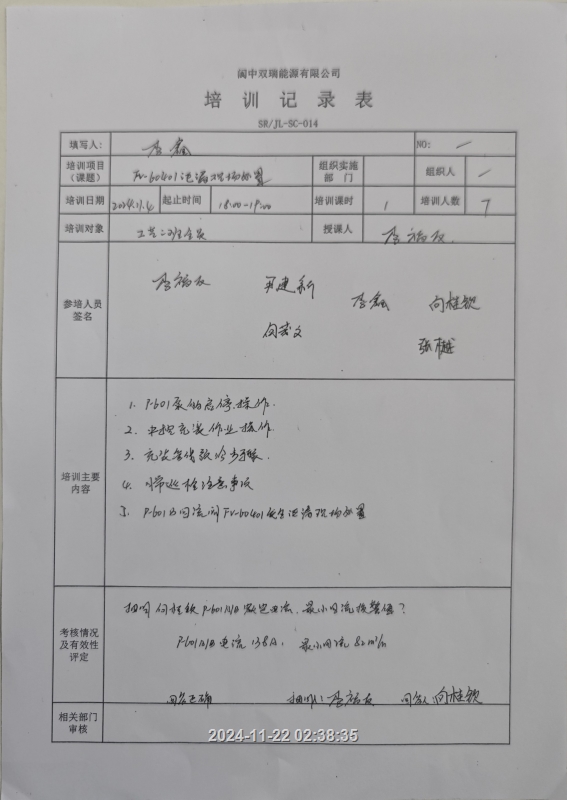 阆中双瑞能源有限公司
培训记录表
SR/JL-SC-014
填写人: 李鑫 NO: —
培训项目(课题) FV-60401泄漏现场处置 组织实施部门 组织人 —
培训日期 2024.11.4 起止时间 18:00-19:00 培训课时 1 培训人数 7
培训对象 工艺二班全员 授课人 李福友
参培人员签名 李福友 李鑫 向桂钦
向武文 张越
培训主要内容
1. P-601泵的启停操作.
2. 充装作业操作
3. 充装
4. 日常巡检注意事项
5. P-601的回流阀FV-60401发生泄漏现场处置
考核情况及有效性评定
抽问向桂钦P-601A/B额定电流、最小回流报警值?
P-601A/B电流138A, 最小回流82m³/h
回答正确 抽问人:李福友 回答人:向桂钦
相关部门审核
2024-11-22 02:38:35